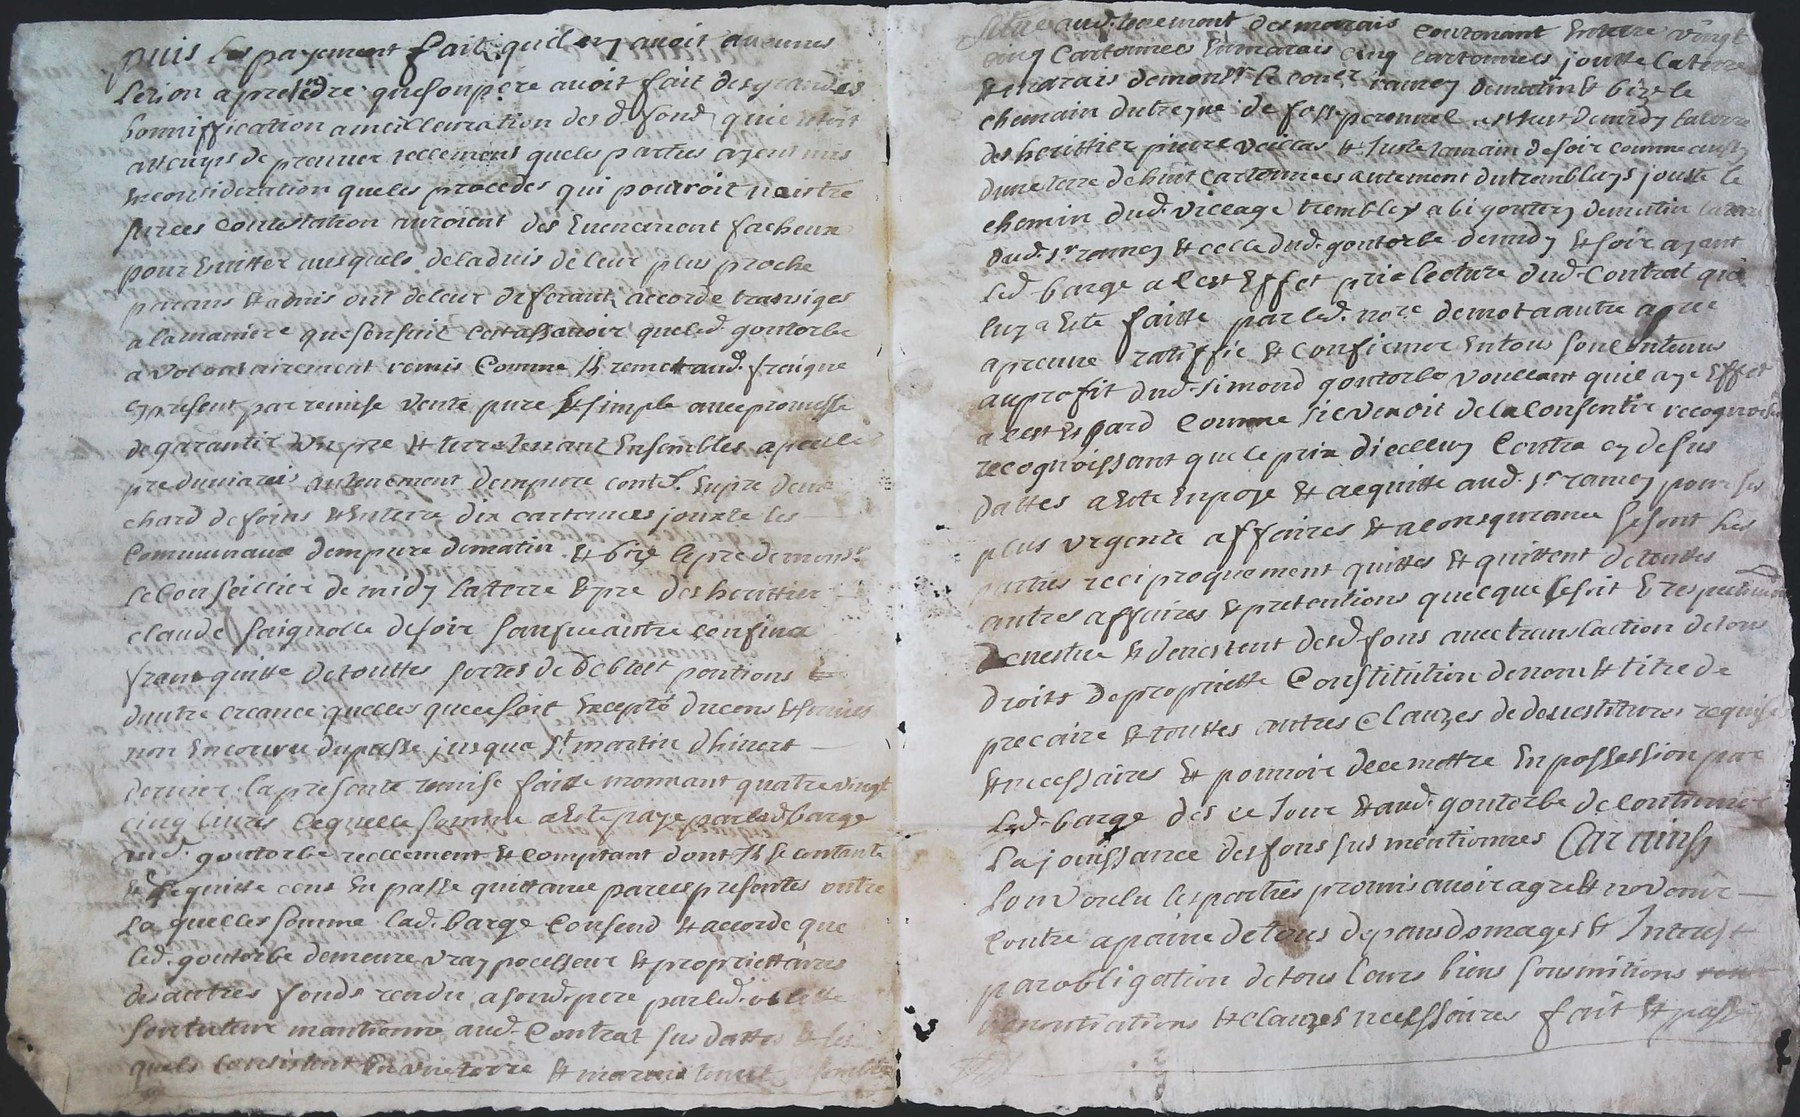 puis les payement fait quil en avoit aucunes
lezion a pretendre que son pere avoit fait des grandes
bonniffication ameillemration des d. fond qui etoit
au temps de premier reellement que les parties ayent mis
en consideration que les procedes qui pourroit neistre
sur ces contestation auroient des Evenement facheux
pour Evitter ausquels de ladvis de leur plus proche
parans & admis ont de leur diferant accorde transiges
a la maniere que sensuit Cest assavoir que led. goutorbe
a volontairement remis Comme Il remet aud. françois
cy present par remise vente pure & simple avec promesse
de garantir un pre & terre tenant Ensembles apelle
pre du marais au tenement dempure cont.t En pre deux
chard de foins & En terre dix cartonnees jouxte les
Communaux dempure de matin & bize le pre de mons.r
le Conseillier de midy la terre & pre des herittier
claude saignolle de soir sauf ses autre confins
franc quitte de touttes sortes de Debtest pantions &
dautre creance quelles que ce soit Excepté du cens & servis
non Encouru du passe jusqua S.t martin dhivert
dernier la presente remise faitte moienant quatre vingt
cinq livres laquelle somme a Esté paye par lad. barge
aud. goutorbe reellement & comptant dont Il se contante
& lequitte cens En passe quittance par ces presentes outre
la quelles somme lad. barge Consend & accorde que
led. goutorbe demeure vray pocesseur & propriettaires
des autres fonds vendu a sond. pere par led.
son tuteur mantionne aud. Contrat sus dattes &
quels Consistent En une terre & marais tenant Ensemble
situe aud. tenement des marais contenant En terre vingt
cinq cartonnees En marais cinq cartonnees jouxte la terre
& marais de mons.r le cons.er ramey de matin & bize le
chemain du treyve de fosse personnel de midy la terre
des herittier pierre veillas & Juste Jamain de soir comme aussy
dune terre de huit cartonnees au tement du trembleys jouxte le
chemin dud. village trembley a bigouton de matin la terre
dud. s.r ramey & celle dud. goutorbe de midy & soir ayant
led. barge a cest Effet pris lecture dud. Contrat qui
luy a Este faitte par led. no.re de mot a autre apres
apreuve ratiffie & confirmer En tous son Contenus
au profit dud. simond goutorbe voullant quil aye Effet
a cest Egard Comme sil venoit de la Consentir
recognoissant que le prix dicelluy Contra cy desus
dattes a Este Enpoye & aequitte aud. s.r ramey pour ses
plus urgente affaires & a consequance se sont les
parties reciproquement quittes & quittent de touttes
autres affaires & pretentions quelque se soit & respectivement
devestue & devestent desd. fons avec translaction de tous
droits de propriette Constitution de nom & titre de
precaire & touttes autres clauzes de devestitures requises
& necessaires & pouvoir de ce mettre En possession par
led. barge des ce Jour & aud. goutorbe de continuer
la jouissance des fons sus mentionnes Car ainsy
lon voulu les parties promis avoir agre & ny venir
contre a paine de tous depans domages & Interest
par obligation de tous leurs biens sousmitions
renontiations & clauzes necessaires fait & passe